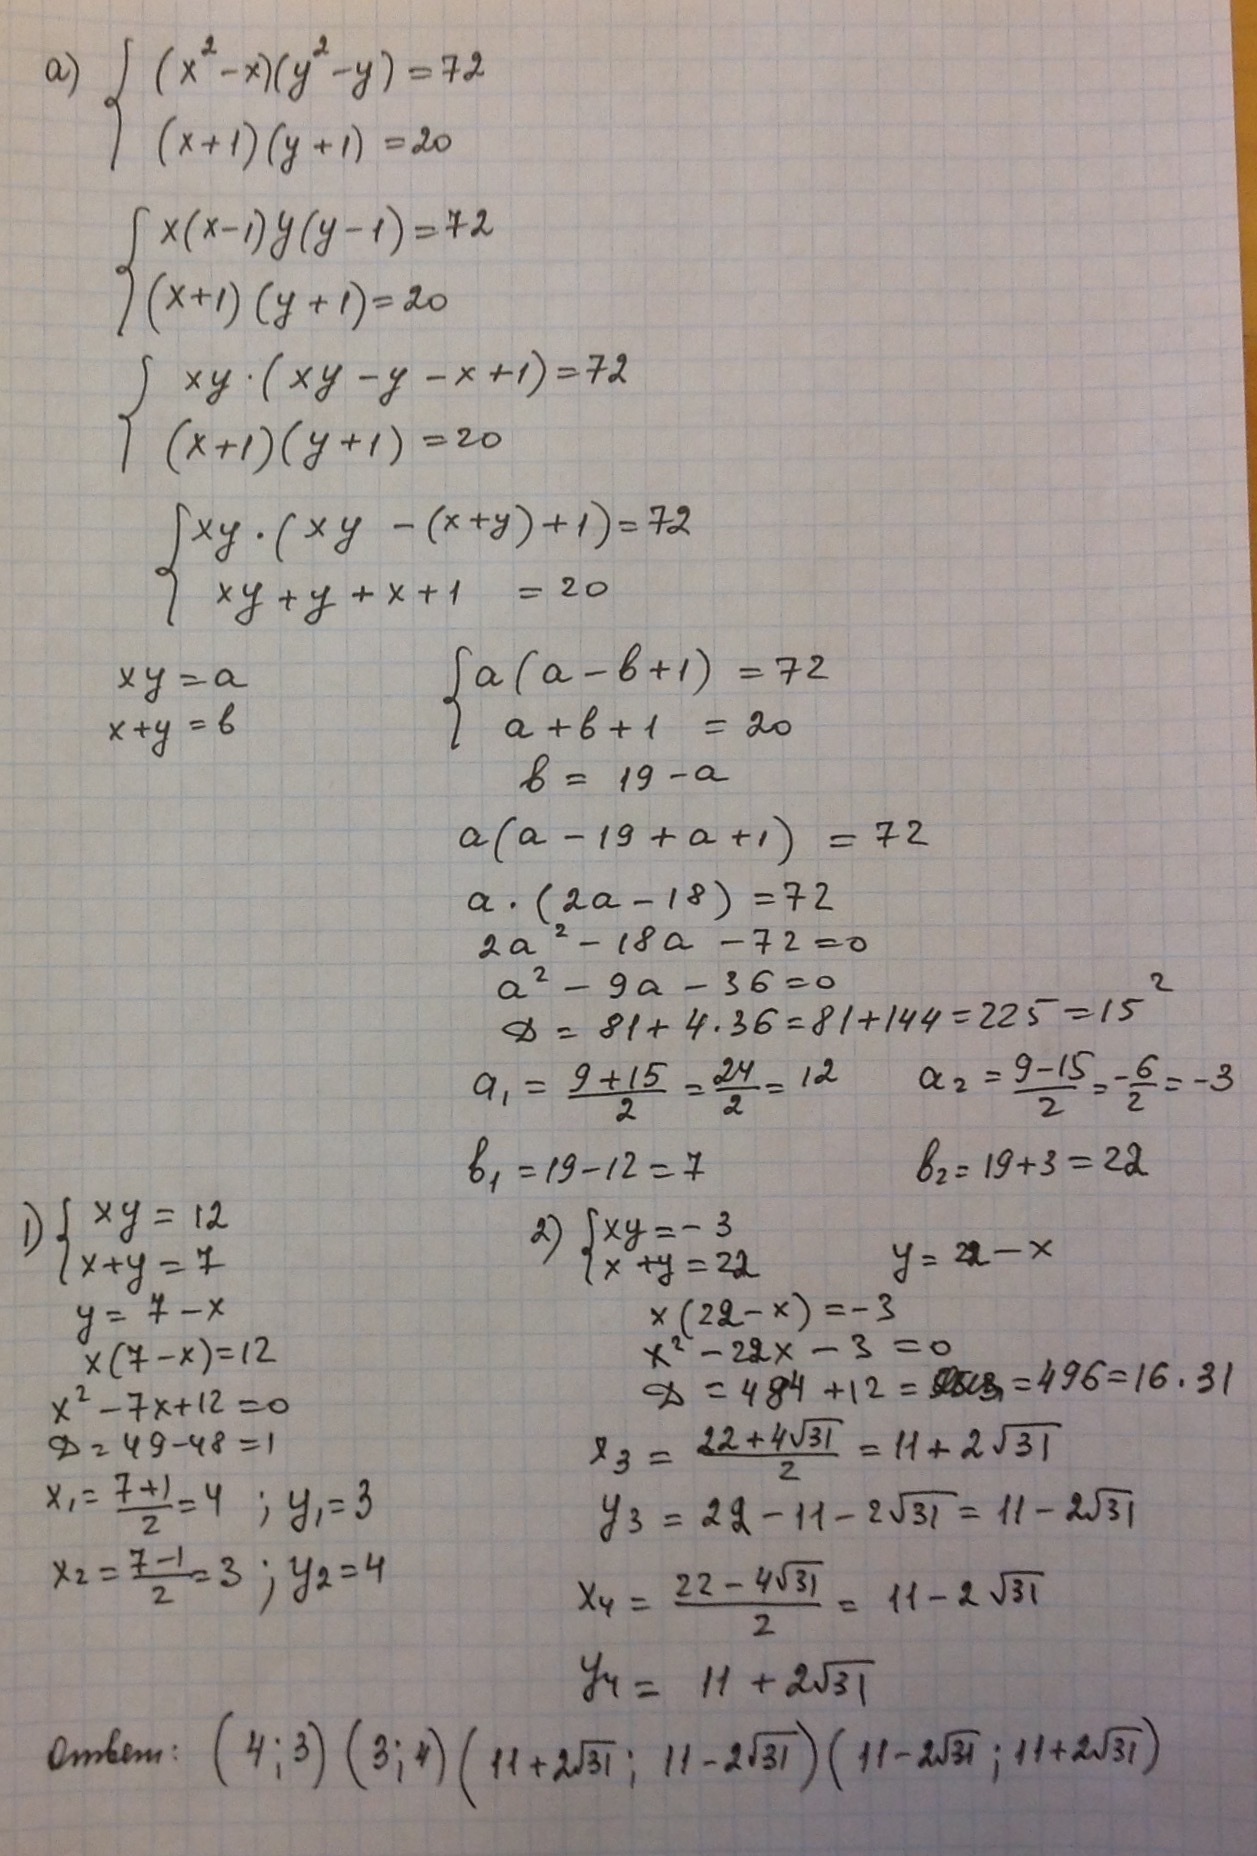 а) { (x² - x)(y² - y) = 72
(x+1)(y+1) = 20
{ x(x-1)y(y-1) = 72
(x+1)(y+1) = 20
{ xy·(xy - y - x + 1) = 72
(x+1)(y+1) = 20
{ xy·(xy - (x+y) + 1) = 72
xy + y + x + 1 = 20
xy = a
x+y = в
{ a(a - в + 1) = 72
a + в + 1 = 20
в = 19 - a
a(a - 19 + a + 1) = 72
a·(2a - 18) = 72
2a² - 18a - 72 = 0
a² - 9a - 36 = 0
D = 81 + 4·36 = 81 + 144 = 225 = 15²
a₁ = (9+15)/2 = 24/2 = 12 a₂ = (9-15)/2 = -6/2 = -3
в₁ = 19 - 12 = 7 в₂ = 19 + 3 = 22
1) { xy = 12
x + y = 7
y = 7 - x
x(7 - x) = 12
x² - 7x + 12 = 0
D = 49 - 48 = 1
x₁ = (7+1)/2 = 4 ; y₁ = 3
x₂ = (7-1)/2 = 3 ; y₂ = 4
2) { xy = -3
x + y = 22 y = 22 - x
x(22 - x) = -3
x² - 22x - 3 = 0
D = 484 + 12 = = 496 = 16·31
x₃ = (22 + 4√31)/2 = 11 + 2√31
y₃ = 22 - 11 - 2√31 = 11 - 2√31
x₄ = (22 - 4√31)/2 = 11 - 2√31
y₄ = 11 + 2√31
Ответ: (4; 3) (3; 4) (11 + 2√31; 11 - 2√31) (11 - 2√31; 11 + 2√31)